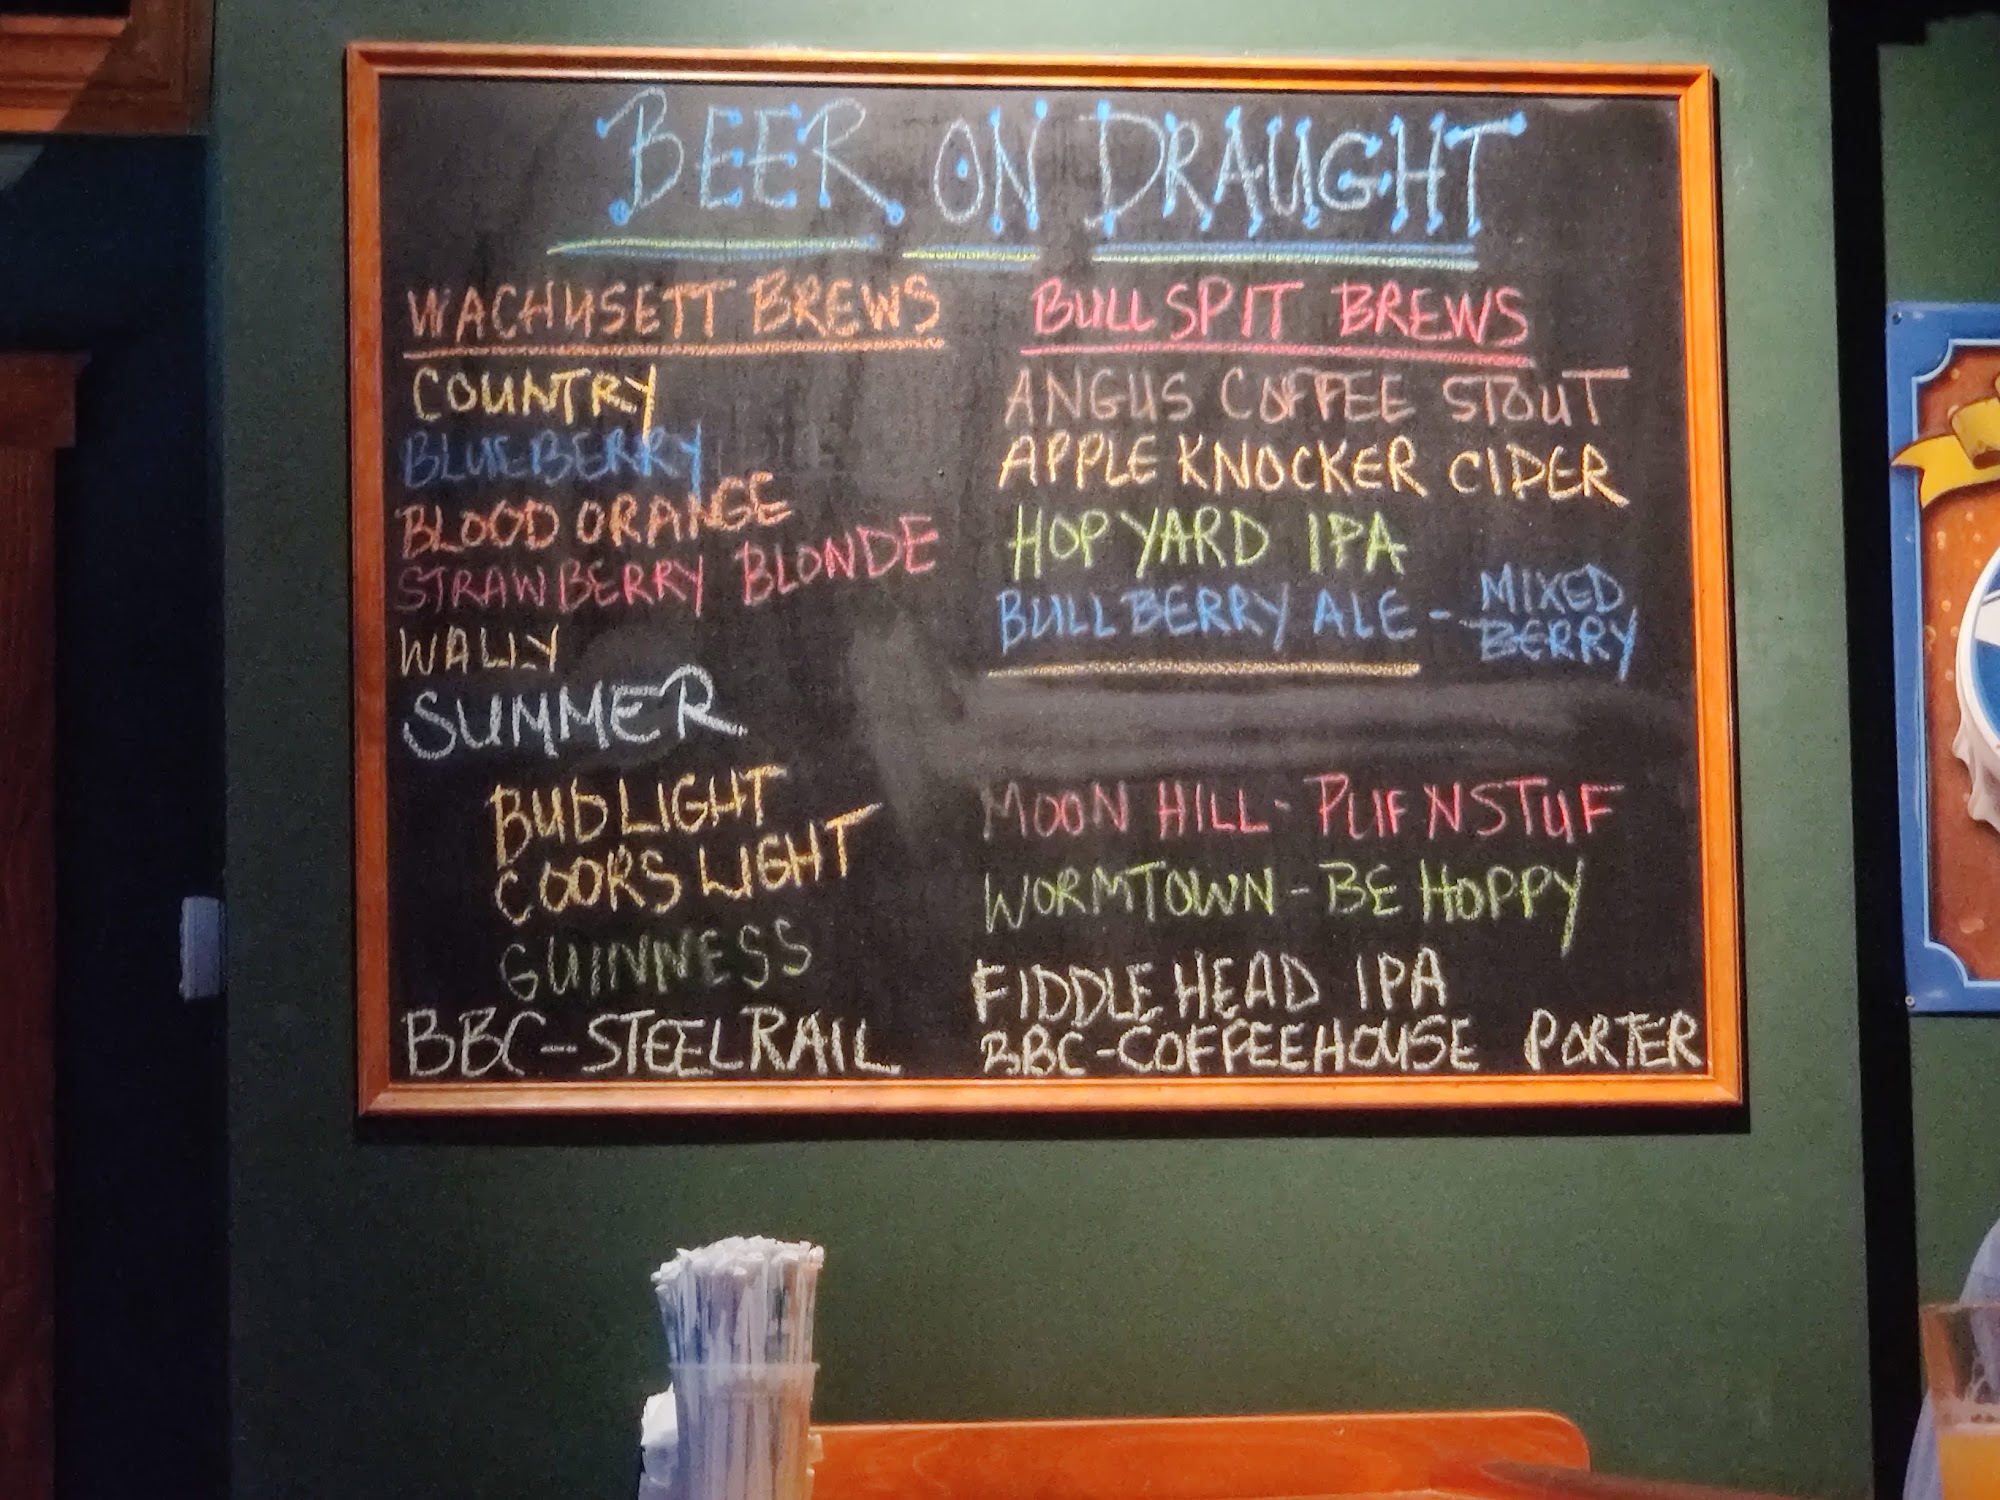 BEER ON DRAUGHT
WACHUSETT BREWS
COUNTRY
BLUEBERRY
BLOOD ORANGE
STRAWBERRY BLONDE
WALLY
SUMMER
BUD LIGHT
COORS LIGHT
GUINNESS
BBC-STEEL RAIL
BULL SPIT BREWS
ANGUS COFFEE STOUT
APPLE KNOCKER CIDER
HOP YARD IPA
BULL BERRY ALE - MIXED
BERRY
MOON HILL - PUF N STUF
WORMTOWN - BE HOPPY
FIDDLEHEAD IPA
BBC-COFFEEHOUSE PORTER